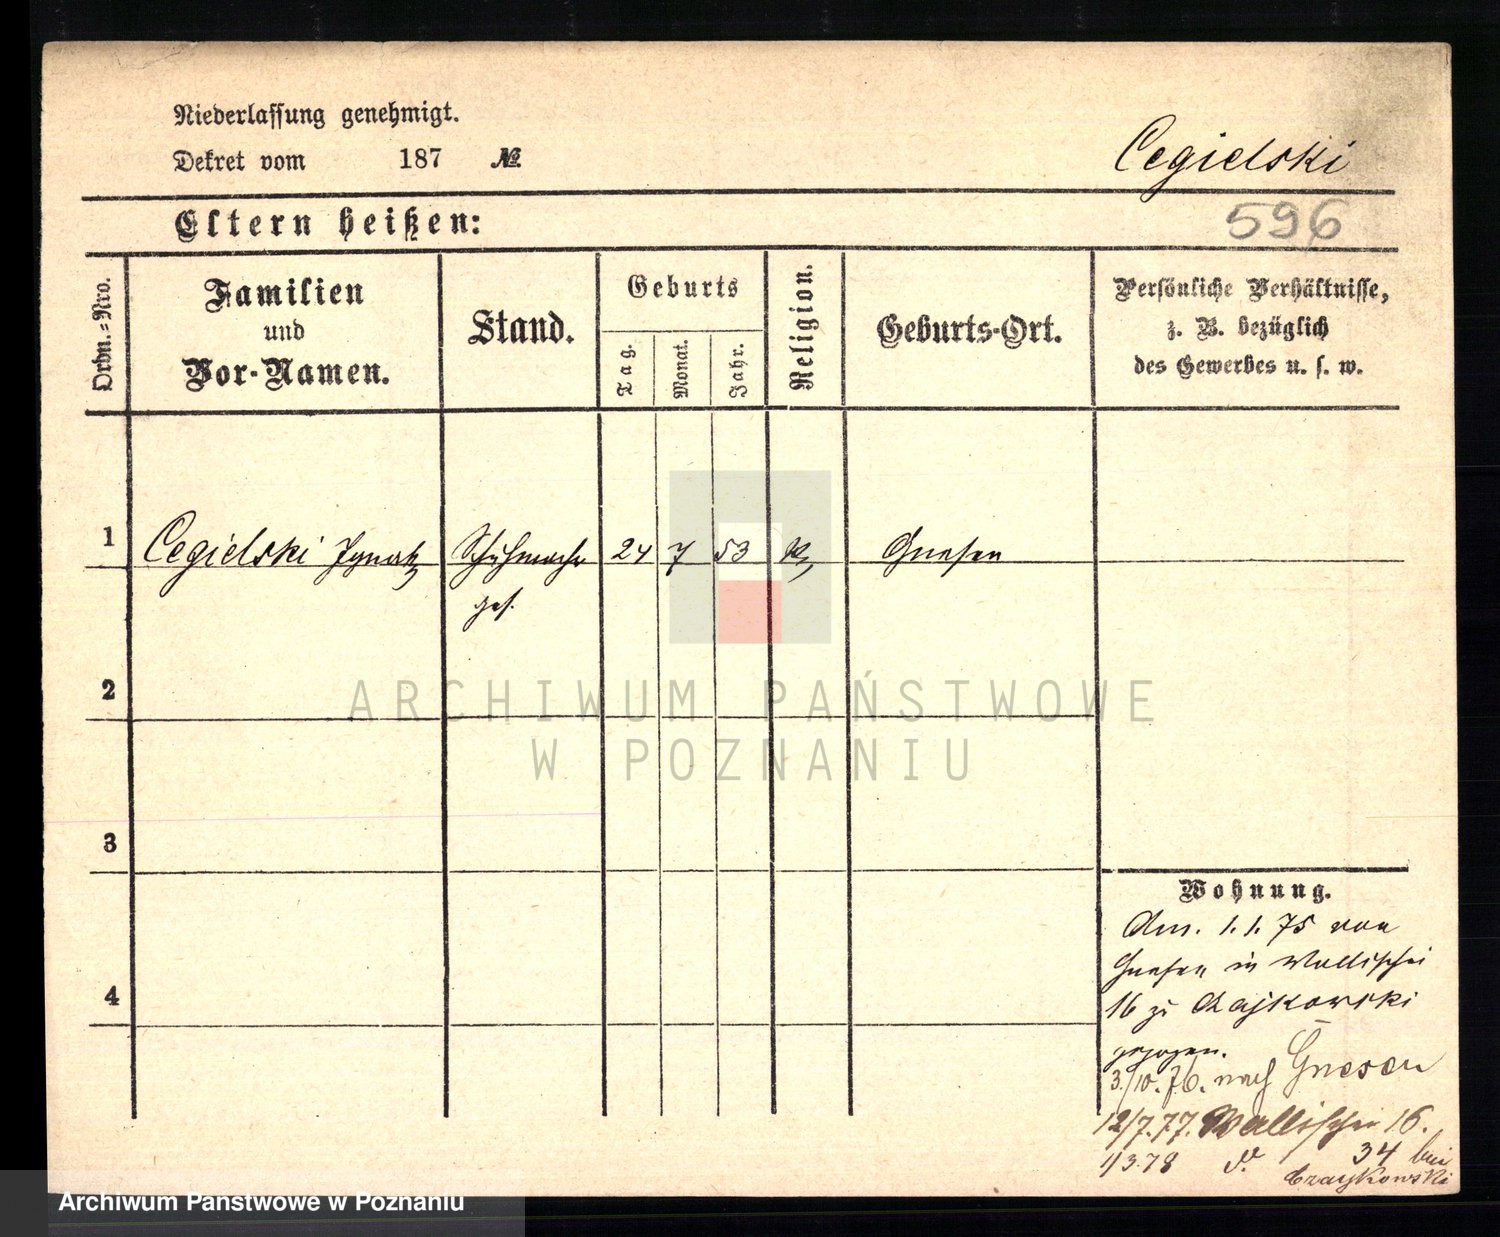 Niederlassung genehmigt.
Dekret vom 187 №
Cegielski
Eltern heißen:
596
Ordn.=Nro.
Familien
und
Vor-Namen.
Stand.
Geburts
Tag.
Monat.
Jahr.
Religion.
Geburts-Ort.
Persönliche Verhältnisse,
z. B. bezüglich
des Gewerbes u. s. w.
1 Cegielski Ignatz Schuhmacher 24 7 53 K, Gnesen
ges.
2
ARCHIWUM PAŃSTWOWE
W POZNANIU
3
Wohnung.
Am. 1.1.75 von
Gnesen in Wallischei
16 zu Czajkowski
4
gezogen.
3./10.76. nach Gnesen
12/7.77. Wallischei 16.
1/3.78 do. 34 bei
Czaykowski
Archiwum Państwowe w Poznaniu